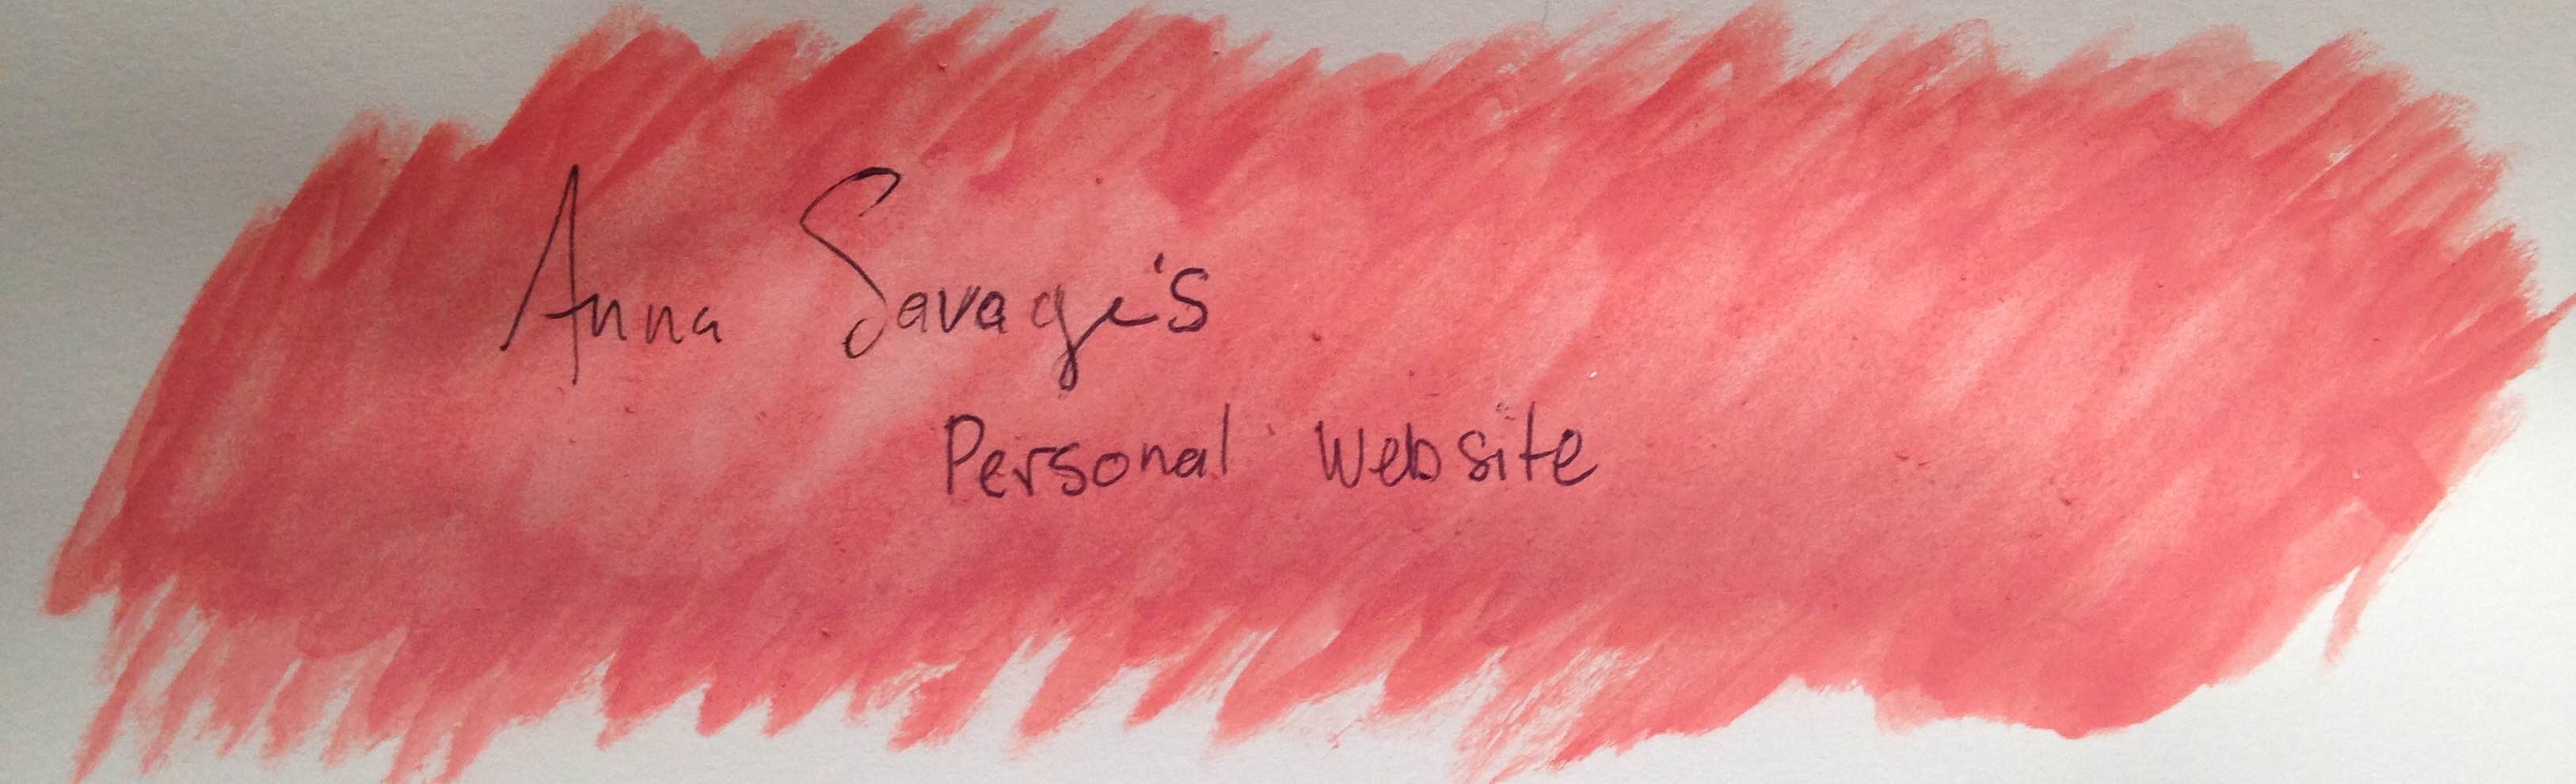 Anna Savage's
Personal Website